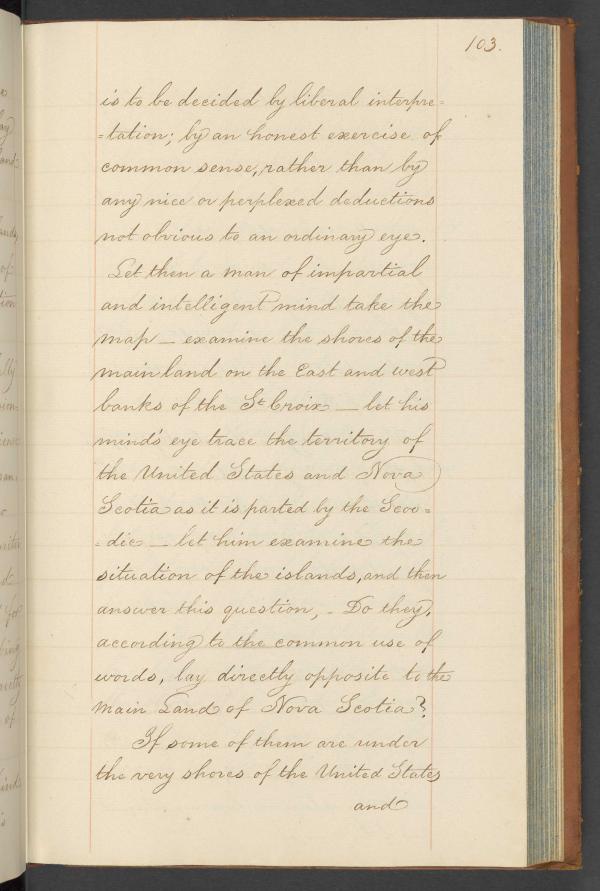 103.
is to be decided by liberal interpre=
=tation; by an honest exercise of
common sense, rather than by
any nice or perplexed deductions
not obvious to an ordinary eye.
Let then a man of impartial
and intelligent mind take the
map _ examine the shores of the
main land on the East and west
banks of the St Croix _ let his
mind's eye trace the territory of
the United States and Nova
Scotia as it is parted by the Scoo=
=dic _ let him examine the
situation of the islands, and then
answer this question, - Do they,
according to the common use of
words, lay directly opposite to the
Main Land of Nova Scotia?
If some of them are under
the very shores of the United States
and